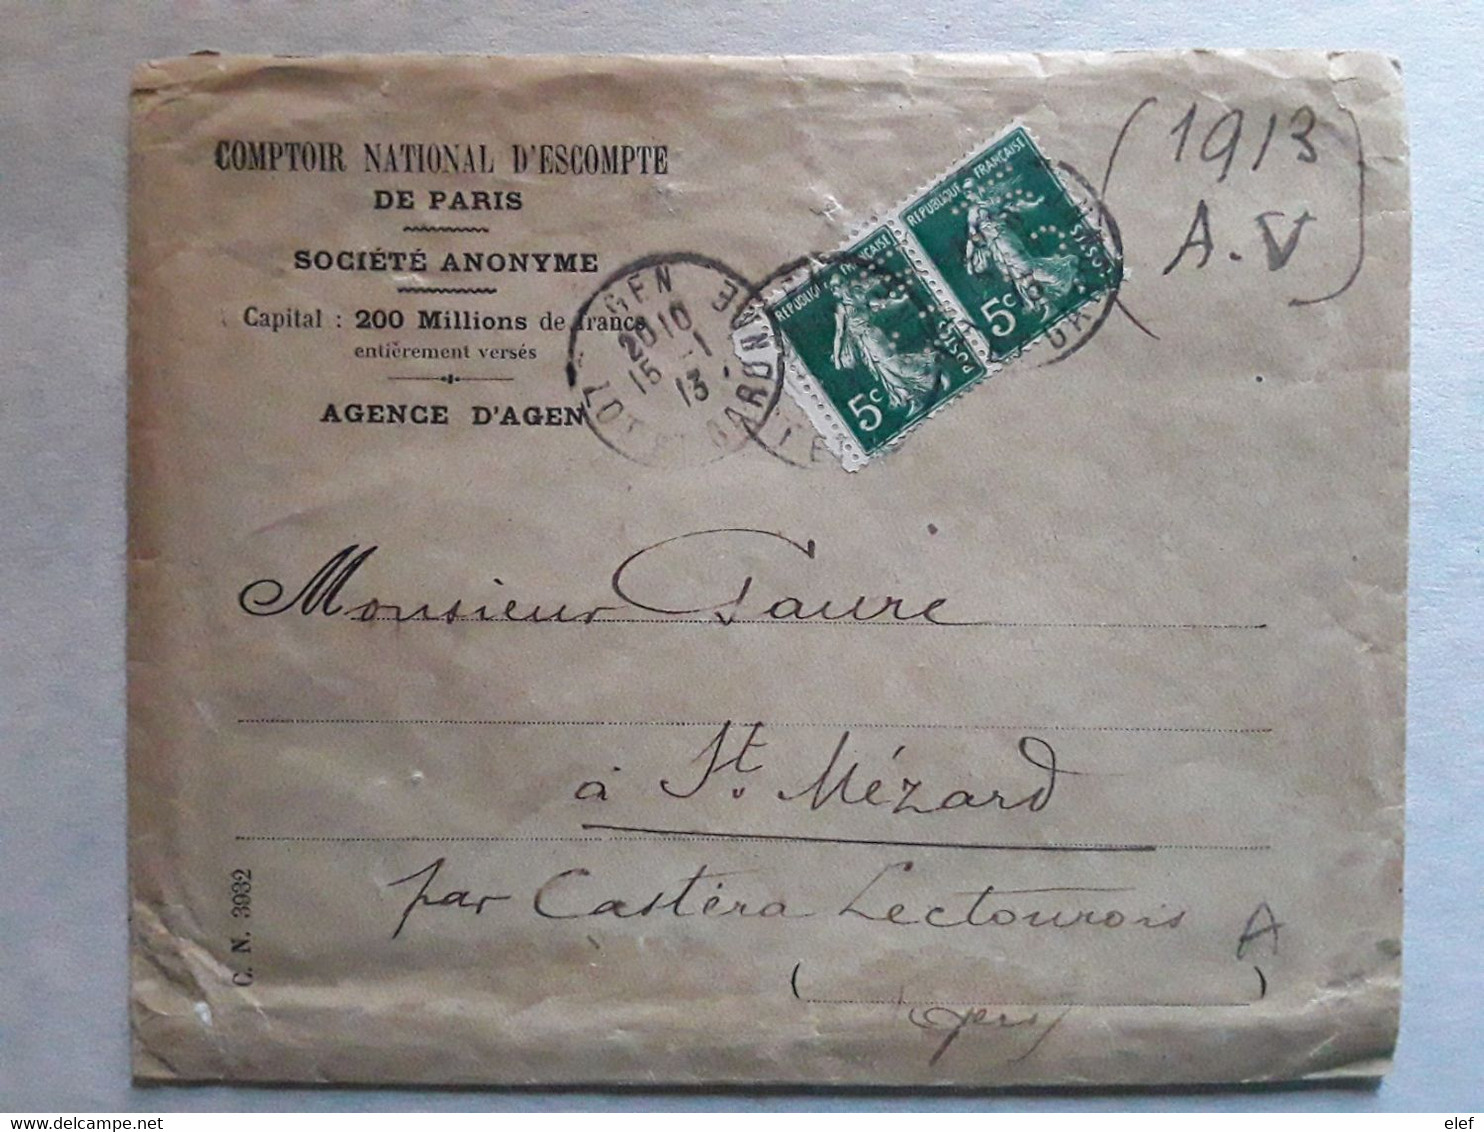 COMPTOIR NATIONAL D'ESCOMPTE
DE PARIS
SOCIÉTÉ ANONYME
Capital : 200 Millions de francs
entièrement versés
AGENCE D'AGEN
AGEN
20 10
15 - 1
13
LOT ET GARONNE
RÉPUBLIQUE FRANÇAISE
POSTES
5c
RÉPUBLIQUE FRANÇAISE
POSTES
5c
(1913
A.V)
Monsieur Faure
à St. Mézard
par Castéra Lectourois
A
(Gers)
C. N. 3932
elef